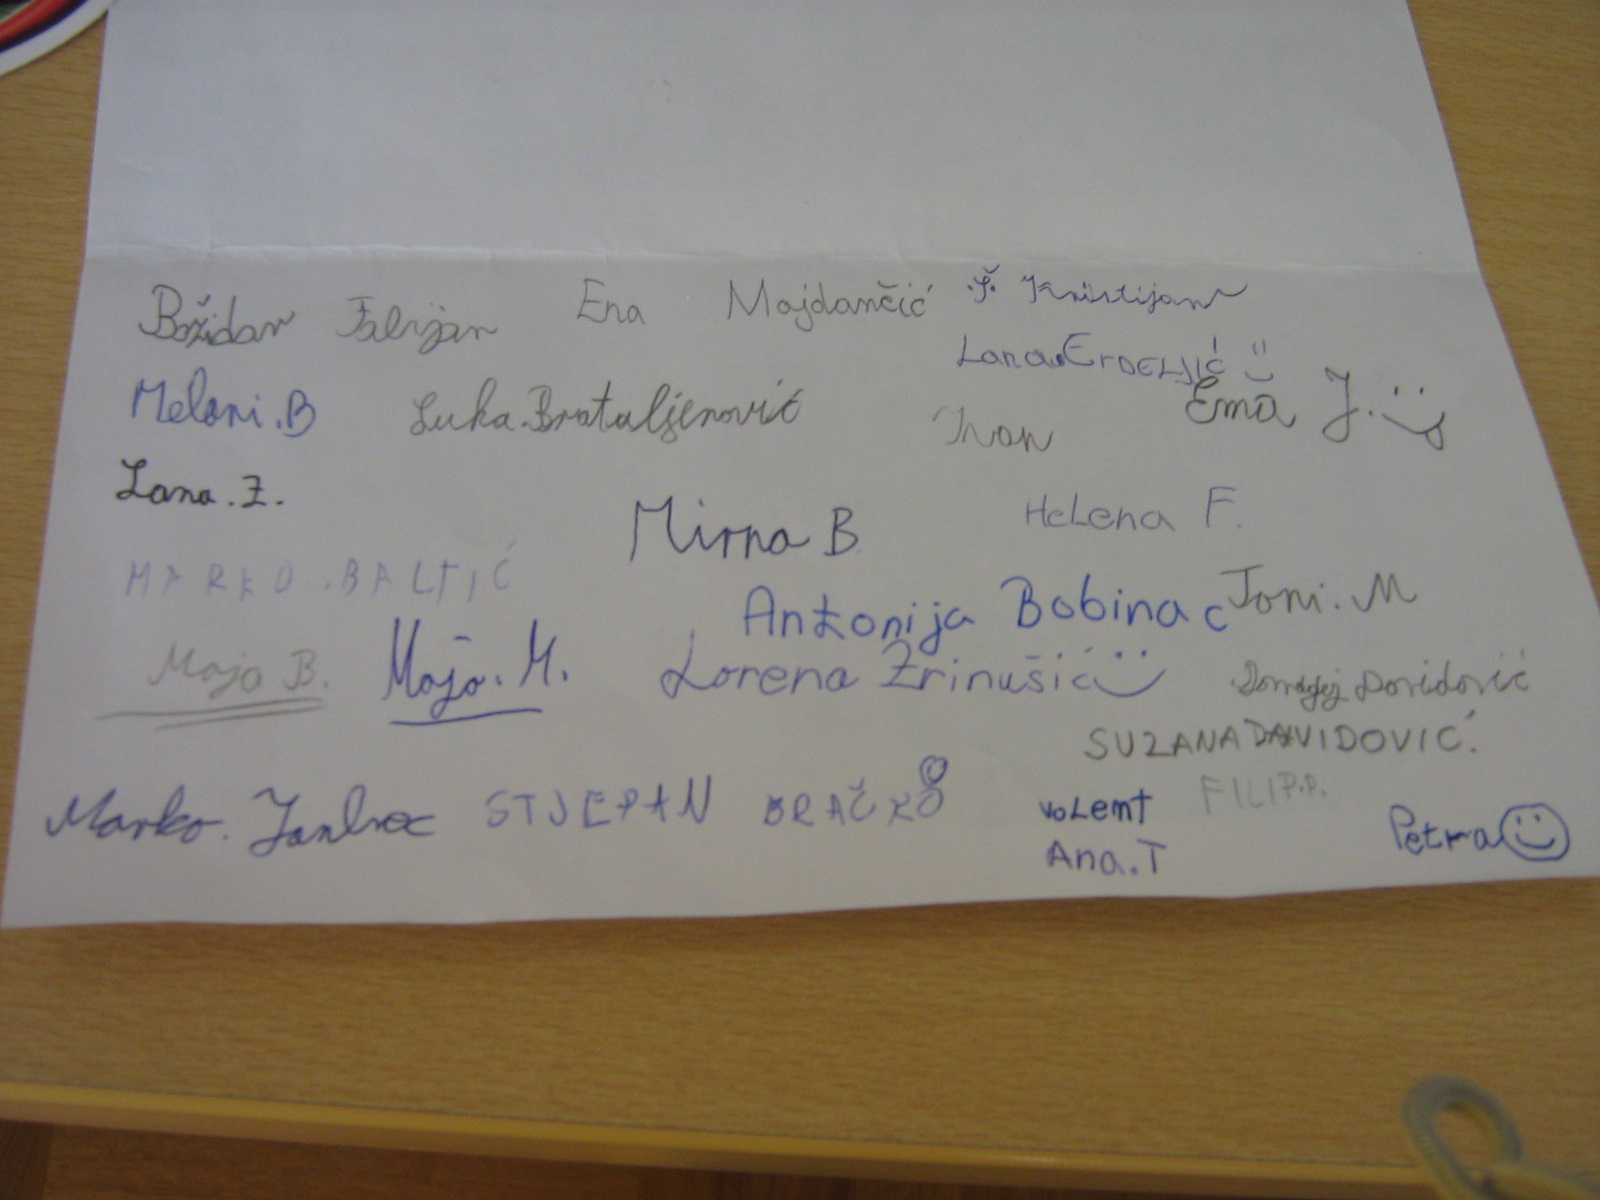 Božidar Fabijan Ena Majdančić Š. Kristijan
Lana.Erdeljić
Melani.B Luka.Brataljenović Ivan Ema J.
Lana.Z.
Mirna B. Helena F.
MARKO.BALTIĆ
Antonija Bobinac Toni.M
Maja B. Maja.M. Lorena Zrinušić Domagoj Davidović
SUZANA DAVIDOVIĆ.
Marko. STJEPAN BRAČKO voLemt FILIP.P.
Ana.T Petra